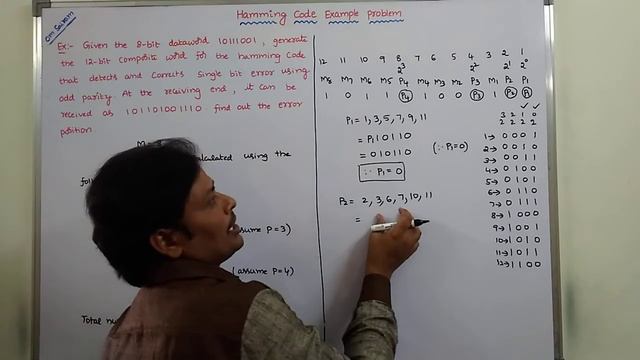 Om Sairam
Hamming Code Example problem
Ex:- Given the 8-bit dataword 10111001, generate
the 12-bit composite word for the hamming code
that detects and corrects single bit error using
odd parity. At the receiving end, it can be
received as 101101001110. find out the error
position.
calculated using the
(assume P=3)
(assume P=4)
12 11 10 9 8 7 6 5 4 3 2 1
2³ 2² 2¹ 2⁰
M8 M7 M6 M5 P4 M4 M3 M2 P3 M1 P2 P1
1 0 1 1 P4 1 0 0 P3 1 P2 P1
P1 = 1, 3, 5, 7, 9, 11
= P1 1 0 1 1 0
= 0 1 0 1 1 0 (∵ P1=0)
∴ P1 = 0
P2 = 2, 3, 6, 7, 10, 11
=
3 2 1 0
2 2 2 2
1→ 0 0 0 1
2→ 0 0 1 0
3→ 0 0 1 1
4→ 0 1 0 0
5→ 0 1 0 1
6→ 0 1 1 0
7→ 0 1 1 1
8→ 1 0 0 0
9→ 1 0 0 1
10→ 1 0 1 0
11→ 1 0 1 1
12→ 1 1 0 0